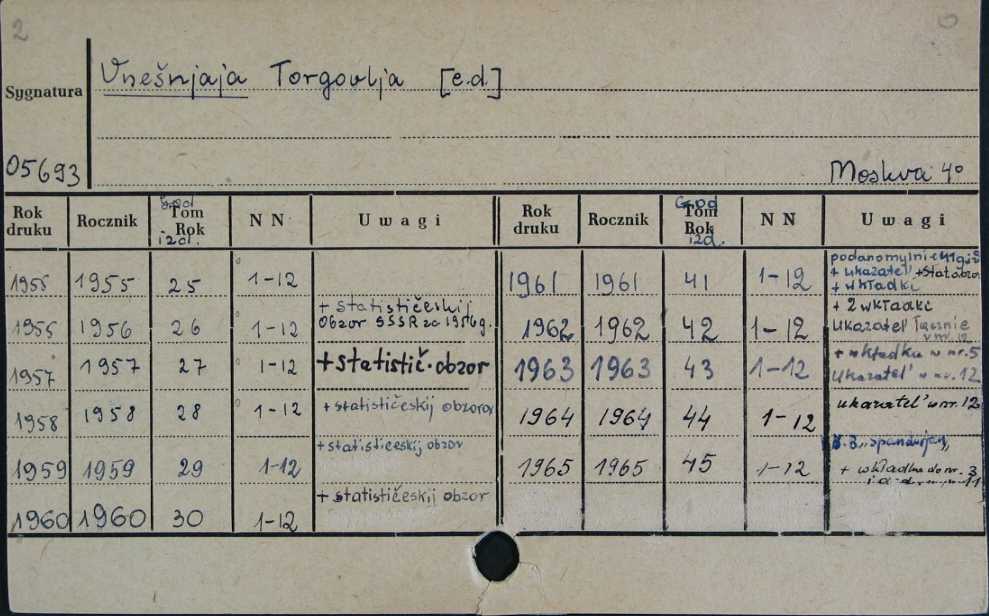 2
Sygnatura
Vnešnjaja Torgovlja [e.d.]
05693
Moskva 4°
Rok druku Rocznik God Tom Rok izd. N N Uwagi Rok druku Rocznik God Tom Rok izd. N N Uwagi
1955 1955 25 1-12
1961 1961 41 1-12 podano mylnie
+ ukazatel' + stat. obzor
+ wkładki
1956 26 1-12 + statističeskij
Obzor SSSR za 1956 g.
1962 1962 42 1-12 + 2 wkładki
ukazatel' łącznie
w nr. 12
1957 1957 27 1-12 + statistič. obzor
1963 1963 43 1-12 + wkładka w nr. 5
Ukazatel' w nr. 12
1958 1958 28 1-12 + statističeskij obzor
1964 1964 44 1-12 ukazatel' w nr. 12
1959 1959 29 1-12 + statističeskij obzor
1965 1965 45 1-12
+ wkładka do nr. 3
1960 1960 30 1-12 + statističeskij obzor